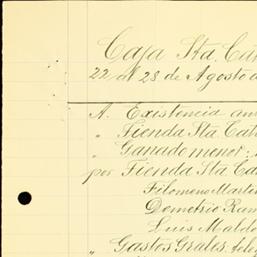 Caja Sta. Cat
22 al 28 de Agosto d
A. Existencia an
" Tienda Sta Cat
" Ganado menor:
por Tienda Sta Ca
Filomeno Marti
Demetrio Ram
Luis Maldo
" Gastos Grales. tele